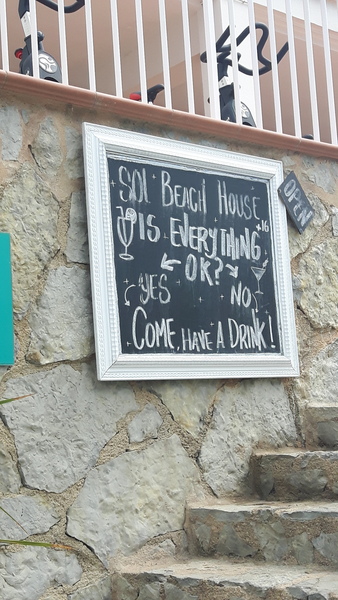 SOL BEACH HOUSE
+16
IS EVERYTHING
OK?
YES NO
COME, HAVE A DRINK!
OPEN